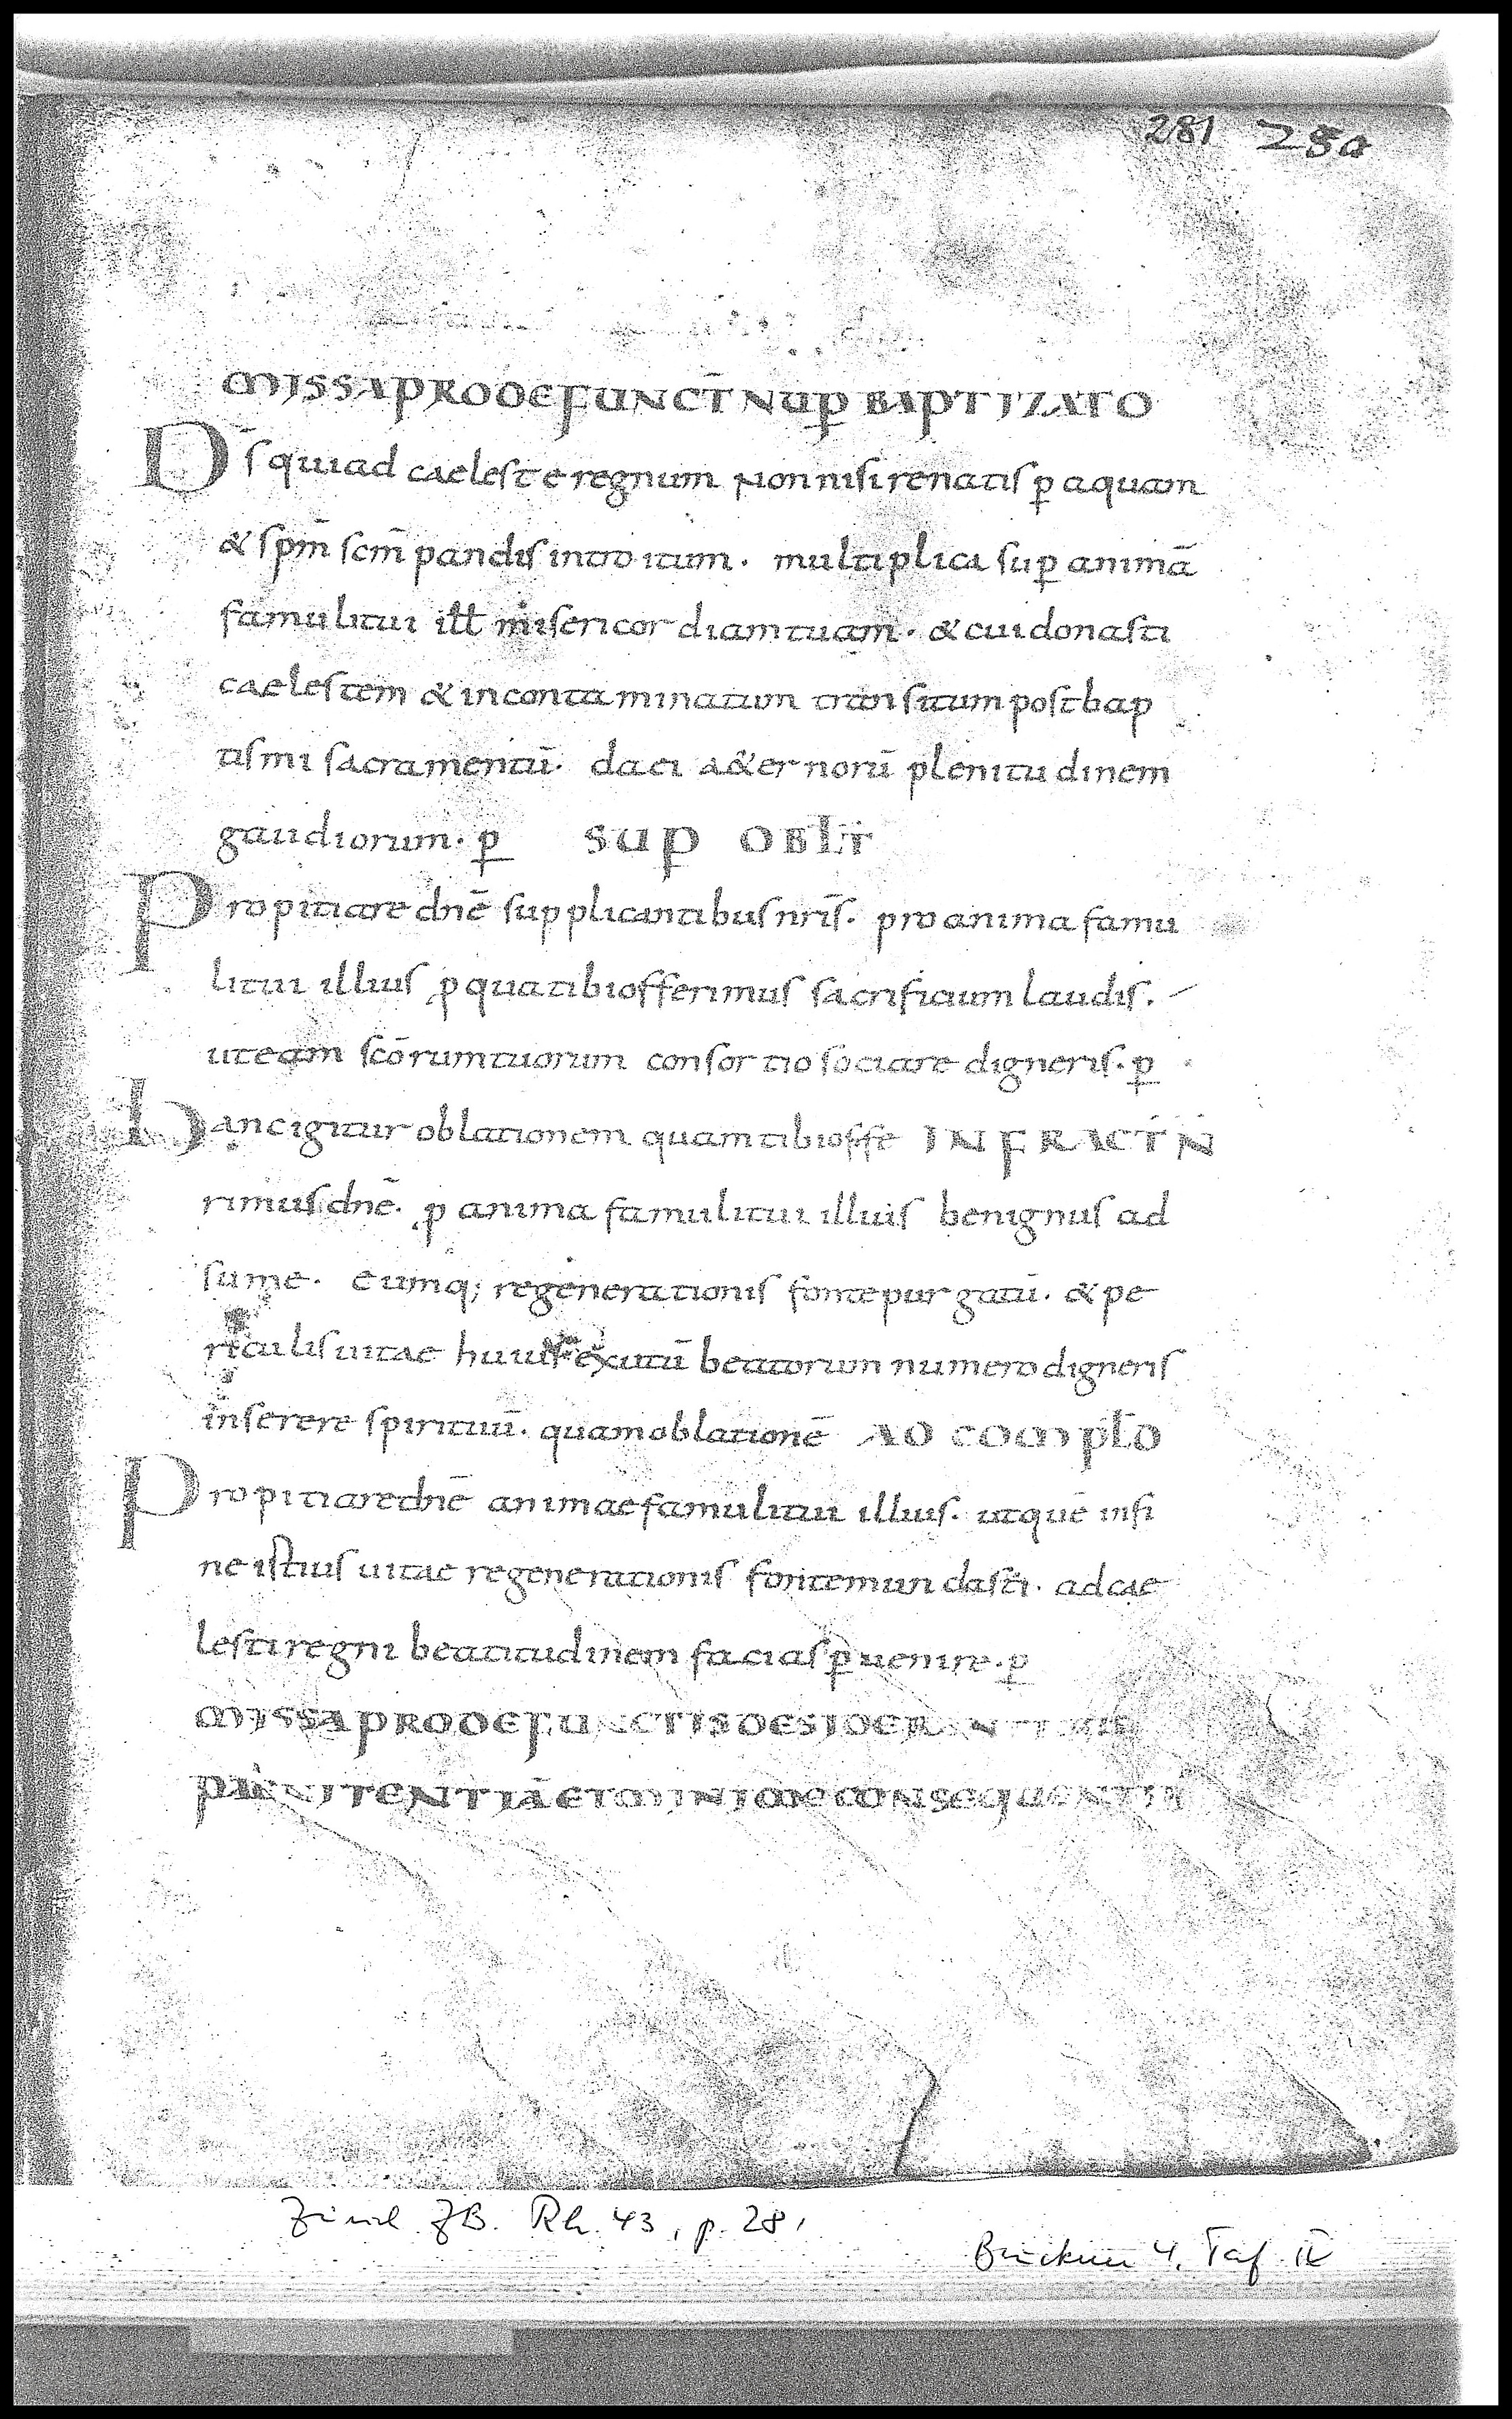 281 280
MISSA PRO DEFUNCT̄ NUꝑ BAPTIZATO
D̄s qui ad caeleste regnum non nisi renatis ꝑ aquam
& sp̄m sc̄m pandis introitum. multiplica suꝑ animā
famuli tui ill̄ misericordiam tuam. & cui donasti
caelestem & incontaminatum transitum post bap
tismi sacramentū. da ei a&ernorū plenitudinem
gaudiorum. ꝑ SUꝑ OBLT̄
Propitiare dn̄e supplicantibus nr̄is. pro anima famu
li tui illius ꝓ qua tibi offerimus sacrificium laudis.
ut eam sc̄orum tuorum consortio sociare digneris. ꝑ
hanc igitur oblationem quam tibi offe INFRACT̄N̄
rimus dn̄e. ꝓ anima famuli tui illius benignus ad
sume. eumq; regenerationis fonte purgatū. & pe
riculis vitae huius exutū beatorum numero digneris
inserere spirituū. quam oblationē AD COMPL̄D
Propitiare dn̄e animae famuli tui illius. ut quē in fi
ne istius uitae regenerationis fonte mundasti. ad cae
lesti regni beatitudinem facias ꝑuenire. ꝑ
MISSA PRO DEFUNCTIS DESIDERANTIBUS
PAENITENTIĀ ET MINIME CONSEQUENTIB
Zürich ZB. Rh. 43, p. 281
Bruckner 4, Taf. IX